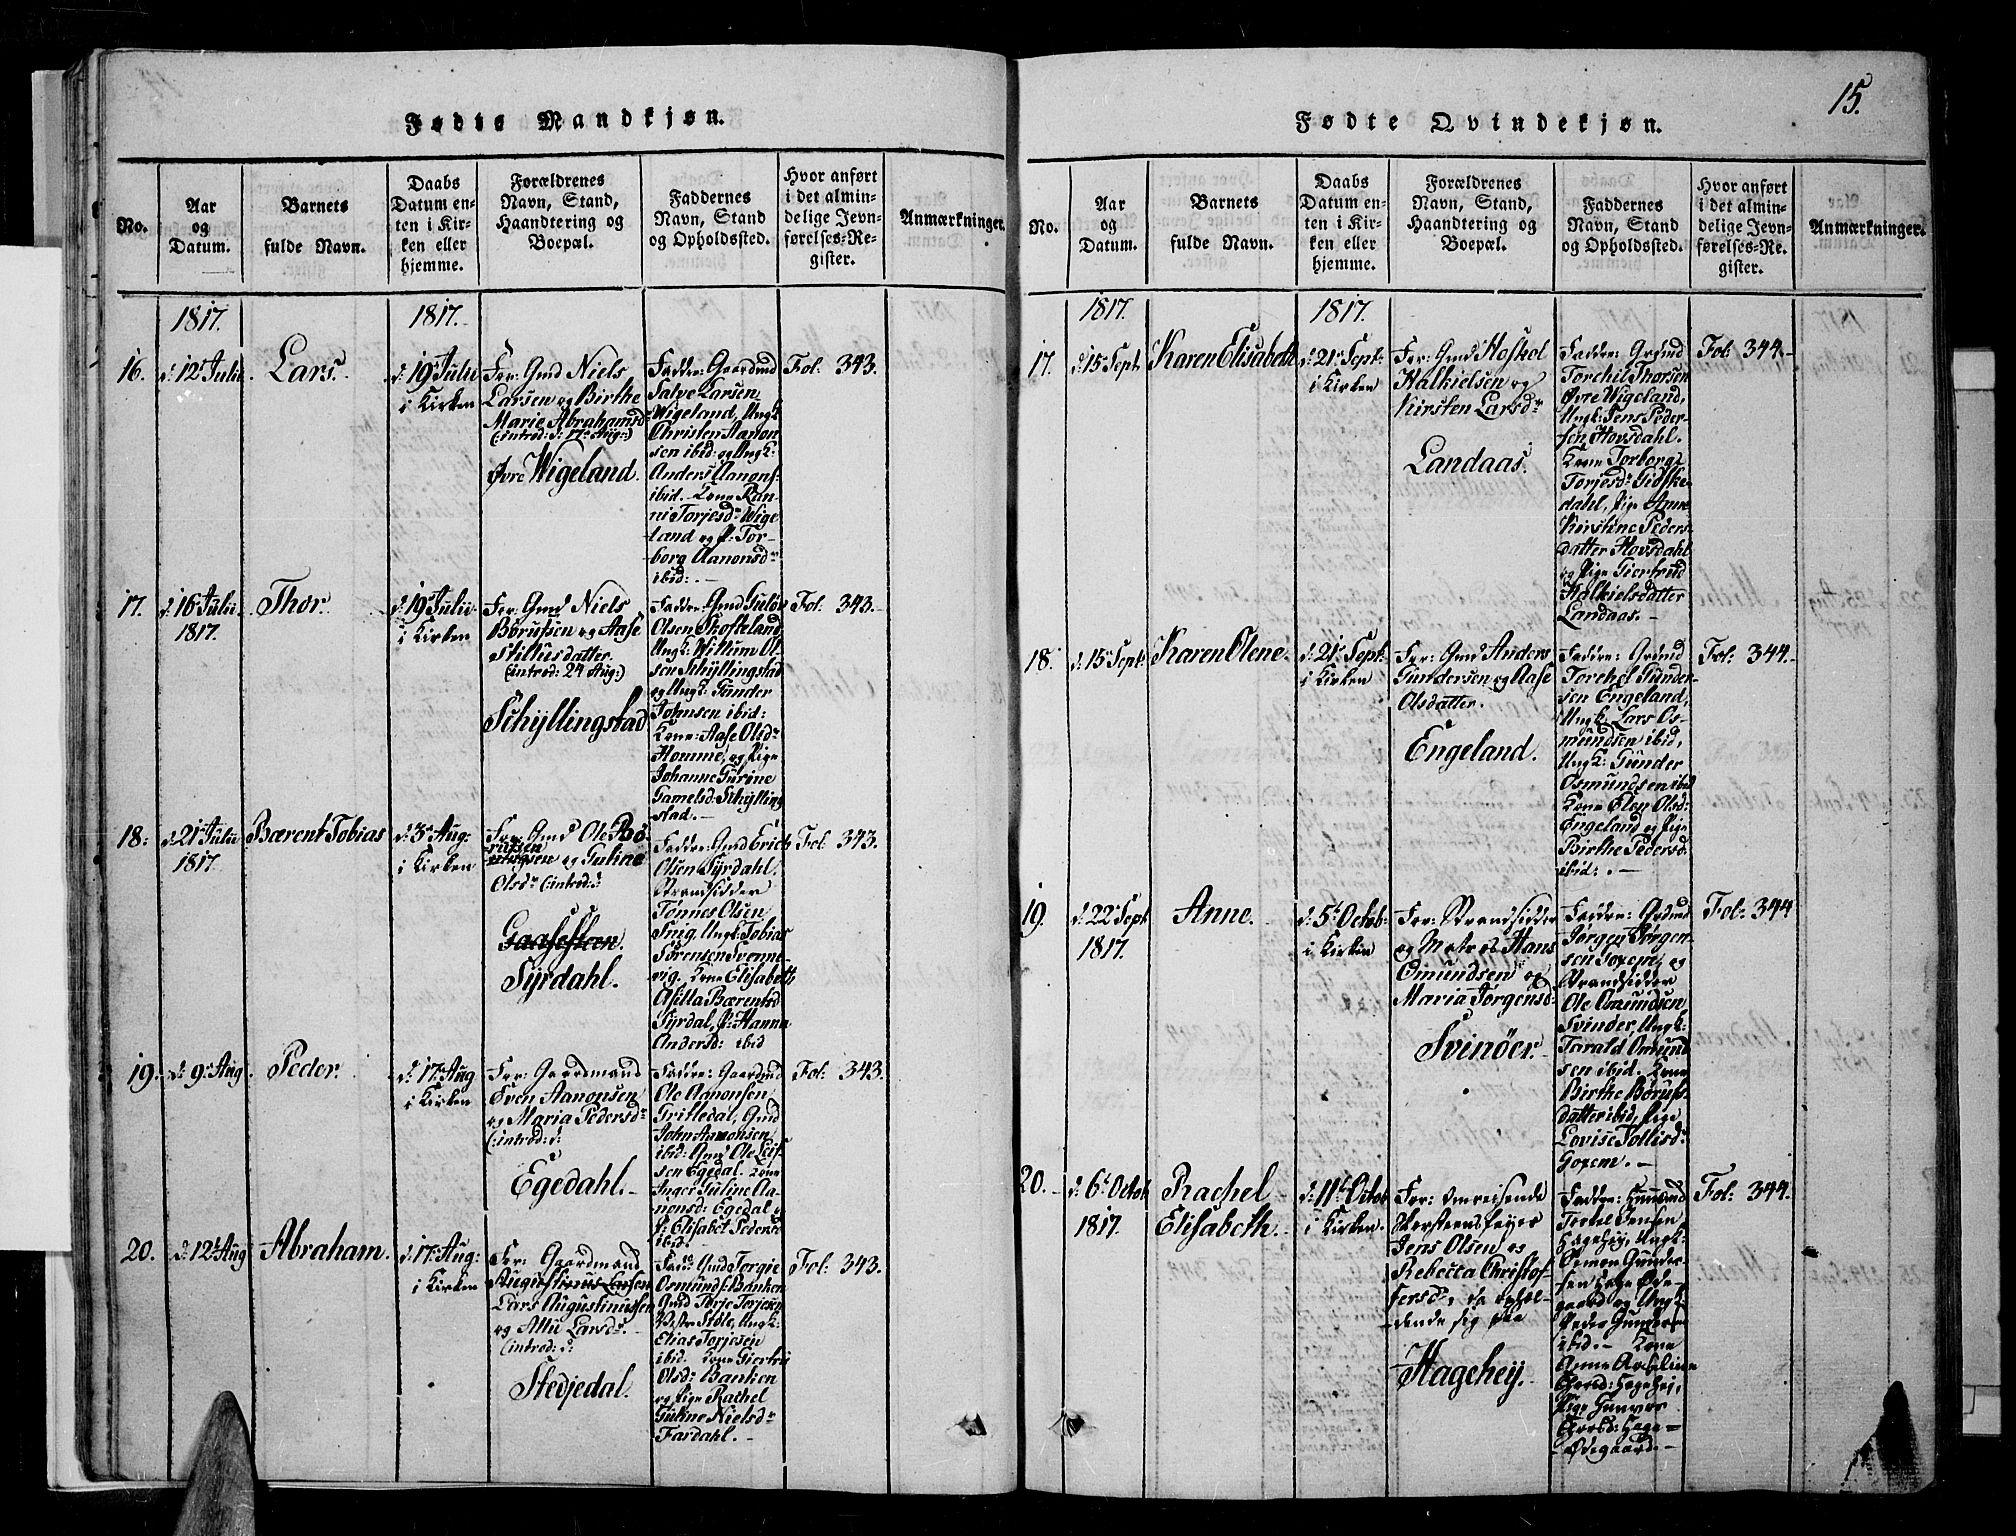 Fødte Mandkjøn.
No.
Aar
og
Datum.
Barnets
fulde Navn.
Daabs
Datum en-
ten i Kir-
ken eller
hjemme.
Forældrenes
Navn, Stand,
Haandtering og
Boepæl.
Faddernes
Navn, Stand
og Opholdssted.
Hvor anført
i det almin-
delige Jevn-
førelses-Re-
gister.
Anmærkninger.
1817.
1817.
16.
d: 12te Julii
Lars.
d: 19de Julii
i Kirken
For: Gmd Niels
Larsen og Birthe
Marie Abrahamsd
(introd: d: 17de Aug:)
Øvre Wigeland.
Faddre: Gaardmd
Salve Larsen
Wigeland, Ungk:
Christen Aanon-
sen ibid: og Ungk:
Anders Aanons:
ibid. - Kone Ran-
ni Torjesdr Wige-
land og P: Tor-
borg Aanonsdr
ibid: . -
Fol: 343.
17.
d: 16de Julii
1817.
Thor.
d: 19de Julii
i Kirken
For: Gmd Niels
Børufsen og Aase
Stillufsdatter.
(introd: 24 Aug:)
Schyllingstad
Faddre: Gmd Gulov
Olsen Skofteland
Ungk: Willum Ol-
sen Schyllingstad
og Ungk: Gunder
Johnsen ibid:
Kone: Aase Olsdr
Homme, og Pige
Johanne Gurine
Gamelsd: Schylling
stad. -
Fol: 343.
18:
d: 21de Julii
1817.
Bærent Tobias
d: 3de Aug:
i Kirken
For: Gmd Ole Bø-
rufsen
og Guline
Olsdr (introd: d:
Gaasesteen.
Syrdahl.
Faddre: Gmd Erich
Olsen Syrdahl.
Strandsidder
Tønnes Olsen
Snig. Ungk: Tobias
Sørensen Svenne-
vig. Kone Elisabeth
Asilla Bærentsd
Syrdal, P: Hanna
Andersd: ibid
Fol: 343.
19.
d: 9de Aug
Peder.
d: 17de Aug
i Kirken
For: Gaardmand
Sven Aanonsen
og Maria Pedersdr
(introd: d:
Egedahl.
Faddre: Gaardmd
Ole Aanonsen
Gritledal, Gmd
John Aanonsen
ibid: Gmd Ole Leif-
sen Egedal. Kone
Inger Guline Aa-
nonsd: Egedal og
P: Elisabet Pedersd
ibid.
Fol: 343.
20.
d: 12te Aug
Abraham.
d: 17de Aug:
i Kirken
For: Gaardmand
Augustinus Larsen
Lars Augustinussen
og Allu Larsdr.
(introd: d:
Stedjedal.
Fad: Gmd Torgie
Osmunds: Banken
Gmd Torje Torjesen
Støle, Ungk:
Elias Torjesen
ibid. Kone Giertru
Olsd: Banken
og Pige Rachel
Guline Nielsdr
Fardahl. -
Fol: 343.
15.
Fødte Qvindekjøn.
No.
Aar
og
Datum.
Barnets
fulde Navn.
Daabs
Datum en-
ten i Kir-
ken eller
hjemme.
Forældrenes
Navn, Stand,
Haandtering og
Boepæl.
Faddernes
Navn, Stand
og Opholdssted.
Hvor anført
i det almin-
delige Jevn-
førelses-Re-
gister.
Anmærkninger.
1817.
1817.
17.
d: 15de Sept
Karen Elisabeth
d: 21de Sept:
i Kirken
For: Gmd Hoskol
Halkielsen og
Kirsten Larsdr
Landaas.
Faddre: Grdmd
Torchil Thorsen
Øvre Wigeland,
Ungk: Jens Peder-
sen Hovsdahl.
Kone Torborg
Torjesdr Gidske-
dahl, Pige Anne
Kirstine Peders-
datter Hovsdahl
og Pige Giertrud
Halkielsdatter
Landaas. -
Fol: 344.
18.
d: 15de Sept:
Karen Olene.
d: 21de Sept:
i Kirken
For: Gmd Anders
Gundersen og Aase
Olsdatter.
Engeland.
Faddre: Grdmd
Torchel Gunder-
sen Engeland,
Ungk: Lars Os-
mundsen ibid,
Ungk: Gunder
Osmundsen ibid
Kone Elen Olsd:
Engeland og Pige
Birthe Pedersd:
ibid: . -
Fol: 344.
19.
d: 22de Sept
1817.
Anne.
d: 5te Octob
i Kirken
For: Strandsidder
og Matros Hans
Omundsen og
Maria Jørgensd.
Svinöer.
Faddre: Grdmd
Jørgen Jørgen-
sen Goxem, og
Strandsidder
Ole Omundsen
Svinöer, Ungk:
Tarald Omund
sen ibid. Kone
Birthe Børufs-
datter ibid, Pige
Lovise Tollisdr
Goxem. -
Fol: 344
20.
d: 6te Octob
1817.
Rachel
Elisabeth.
d: 11te Octob
i Kirken.
For: Omreisende
Skorsteensfeyer
Jens Olsen og
Rebecca Christof-
fersdr, da ophol-
dende sig paa
Hagehey.
Faddre: Huusmd
Torkel Jensen
Hagehey, Ungk:
Osmon Gunder-
sen Hage Øde-
gaard og Ungk
Peder Gunders
ibid. - Kone
Anne
Hagehei,
Pige Gunvor
Hage-
Ødegaard. -
Fol: 344.